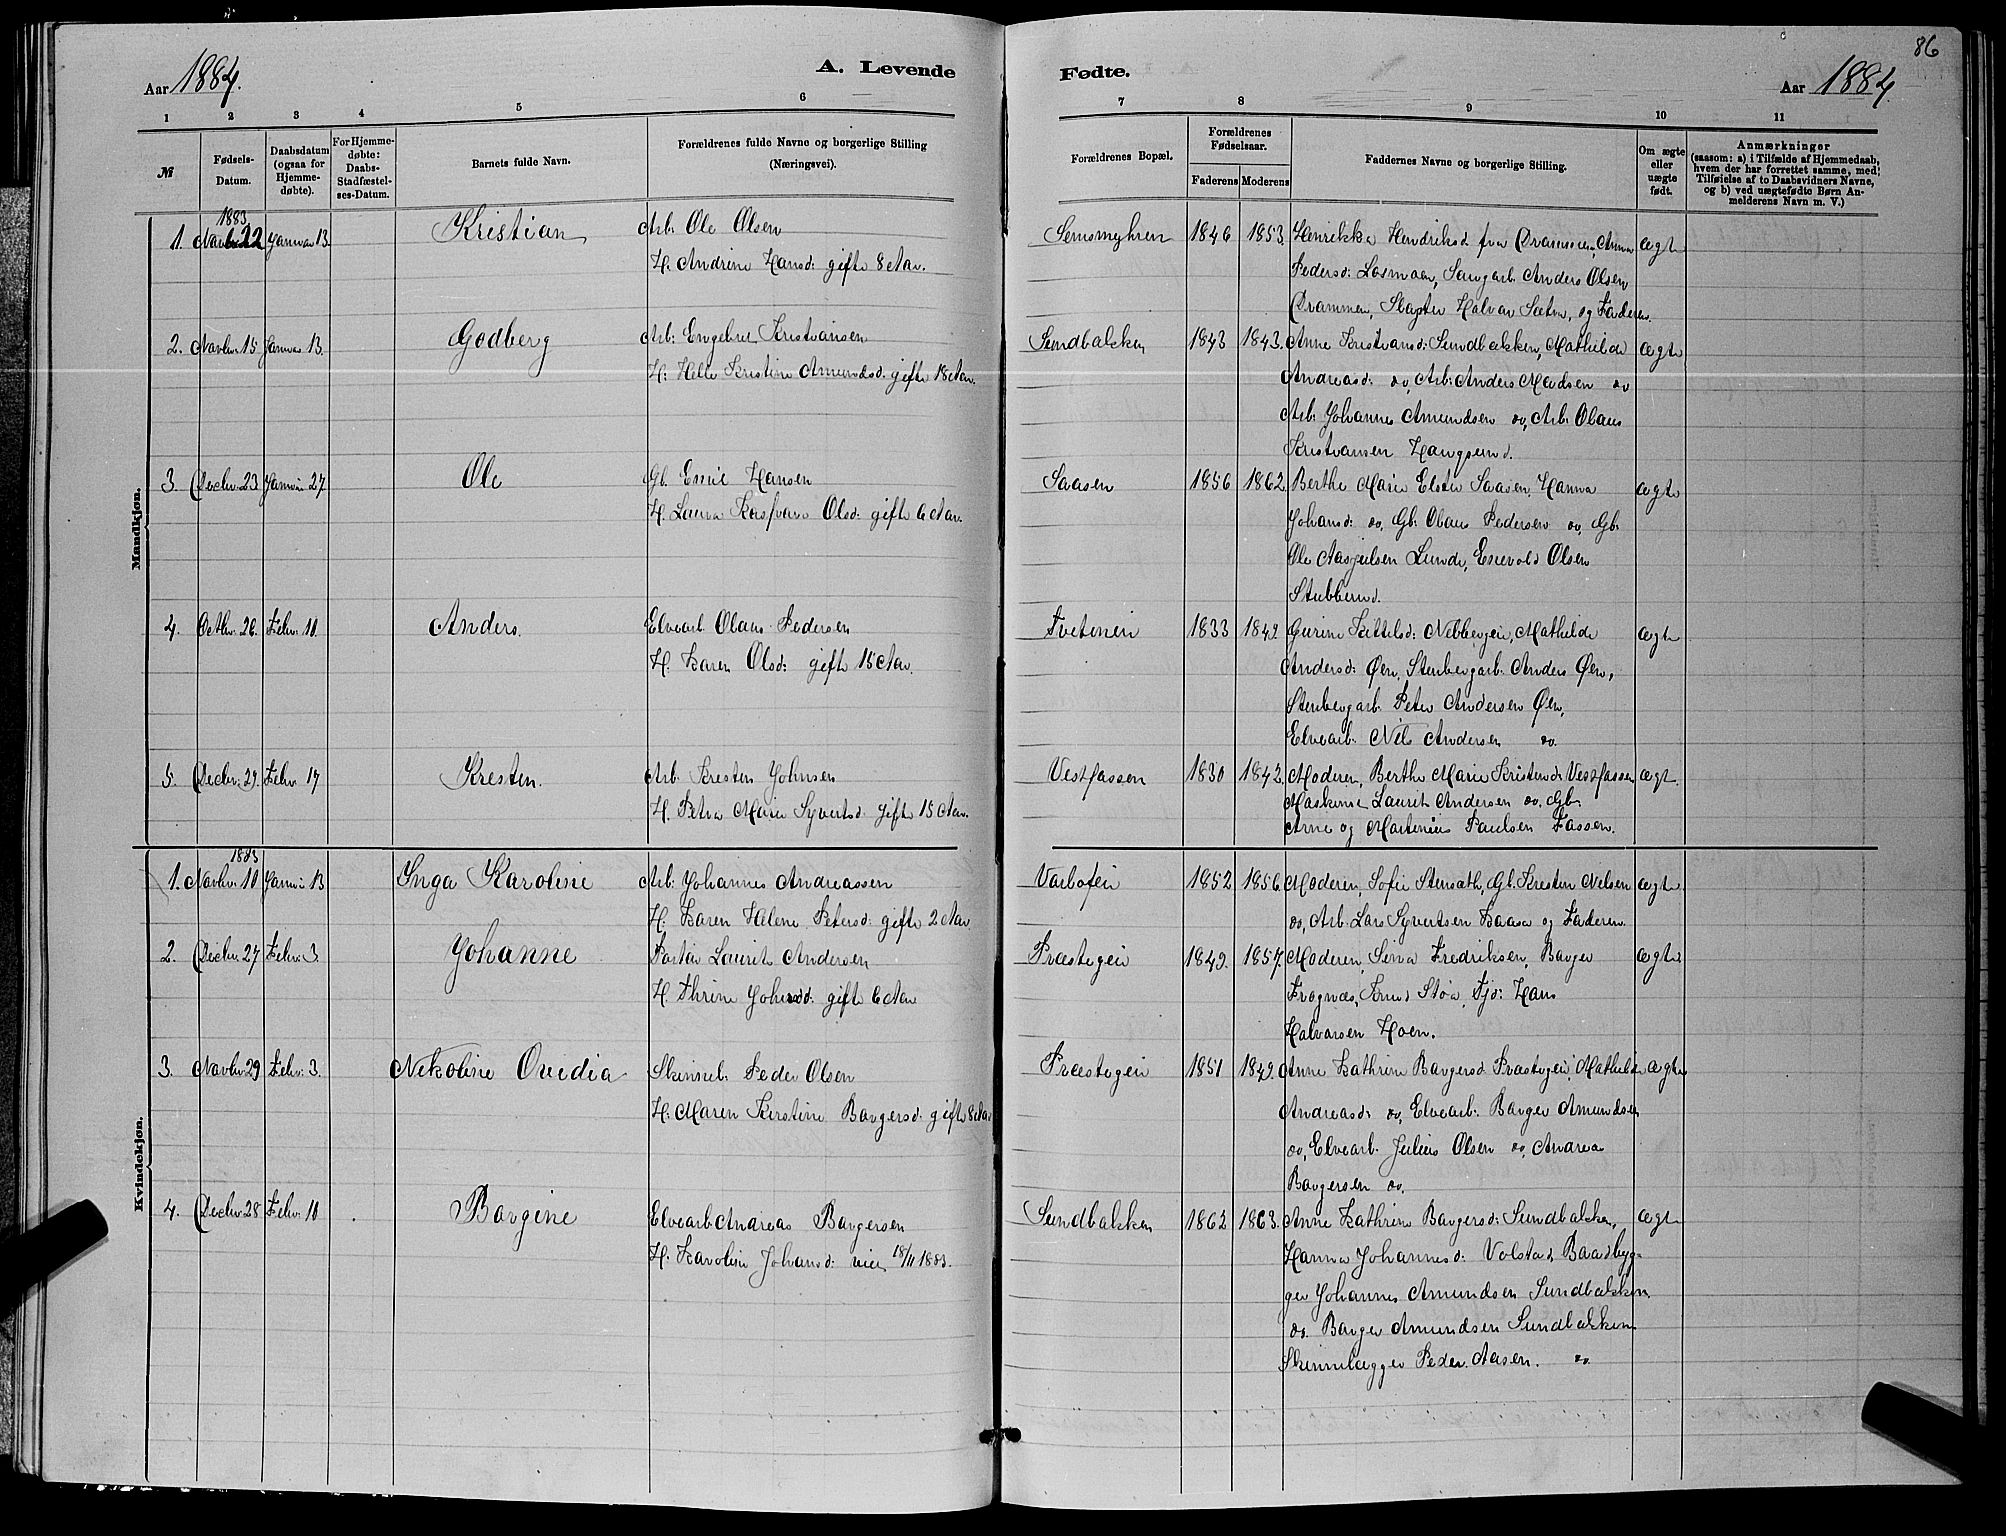 86
Aar 1884.
A. Levende
Fødte.
Aar 1884.
1 2 3 4 5 6 7 8 9 10 11
№
Fødsels-Datum.
Daabsdatum (ogsaa for Hjemme-døbte).
For Hjemme-døbte: Daabs-Stadfæstel-ses-Datum.
Barnets fulde Navn.
Forældrenes fulde Navne og borgerlige Stilling
(Næringsvei).
Forældrenes Bopæl.
Forældrenes Fødselsaar.
Faderens Moderens
Faddernes Navne og borgerlige Stilling.
Om ægte eller uægte født.
Anmærkninger
(saasom: a) i Tilfælde af Hjemmedaab,
hvem der har forrettet samme, med
Tilføielse af to Daabsvidners Navne,
og b) ved uægtefødte Børn An-
melderens Navn m. V.)
Mandkjøn.
1883
1. Novbr. 22 Januar 13. Kristian Arb. Ole Olsen 1846 1853. Henrikke Hendriksd. fra Drammen, Anna ægte
H. Andrine Hansd: gift 8 Aar. Pedersd: Losmoen, Saugarb. Anders Olsen
Drammen, Halvor Sætra, og Faderen.
2. Novbr. 15 Januar 13. Godberg Arb: Engebret Kristiansen Sundbakken 1843 1843. Anne Kristiansd: Sundbakken, Mathilde ægte
H: Helle Kristine Amundsd: gift 18 Aar. Andreasd: do, Arb: Anders Madsen do
Arb: Johannes Amundsen do, Arb: Olaus
Kristiansen Haugsund.
3. Decbr. 23 Januar 27 Ole Gb. Emil Hansen Saasen 1856 1862 Berthe Marie Saasen, Hanna ægte
H. Laura Olsd: gift 6 Aar. Johansd: do, Gb: Olaus Pedersen do, Gb:
Ole Lunde, Enevold Olsen
Stubberud.
4. Octbr. 26. Febr. 10. Anders. Elvearb. Olaus Pedersen 1833 1842. Gurine Kittelsd: Mathilde ægte
H. Karen Olsd: gift 15 Aar. Andersd: Øen, Stenbergarb. Anders Øen,
Stenbergarb. Peter Andersen Øen,
Elvearb. Nils Andersen do.
5. Decbr. 29. Febr. 17 Kresten. Arb. Kresten Johnsen Vestfossen 1830 1842. Moderen, Berthe Marie Kristensd: Vestfossen ægte
H. Petra Marie Syvertsd: gift 15 Aar. Maskinist Laurits Andersen do, Gb.
Arne og Martenius Paulsen Fossen.
Kvindekjøn.
1883
1. Novbr. 10 Januar 13 Inga Karoline Arb: Johannes Andreassen 1852 1856. Moderen, Sofie Gb. Kresten Nelsen ægte
H. Karen Helene Petersd: gift 2 Aar do, Arb. Lars Syvertsen Kaasa og Faderen.
2. Decbr. 27 Febr. 3. Johanne Laurits Andersen Præstegei 1849. 1857. Moderen, Fredriksen, Borger ægte
H. Thrine Johnsd: gift 6 Aar Frognæs, Støa, Tjd: Hans
Halvorsen Hoen.
3. Novbr. 29 Febr. 3. Nikoline Ovidia Skinneb. Peder Olsen Præstegei 1851 1849. Anne Kathrine Borgersd. Præstegei, Mathilde ægte
H. Maren Kirstine Borgersd: gift 8 Aar Andreasd: do, Elvearb. Borger Amundsen
do, Elvearb. Julius Olsen do, Andrea
Borgersen do.
4. Decbr. 28 Febr. 10 Borgine Elvearb. Andreas Borgersen Sundbakken 1862 1863. Anne Kathrine Borgersd: Sundbakken, ægte
H. Karoline Johansd: viet 18/11 1883. Hanna Johannesd: Volstad, Baadbyg-
ger Johannes Amundsen Sundbakken
do. Borger Amundsen Sundbakken
Skinnelægger Peder Aasen. do.